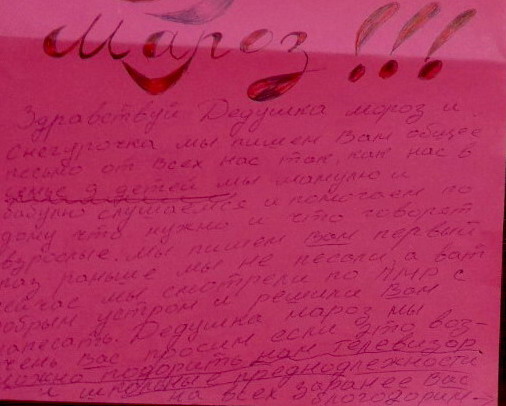 Мароз!!!
Здравствуй Дедушка мороз и
снегурочка мы пишем Вам общее
письмо от всех нас так как нас в
семье 9 детей мы мамулю и
бабулю слушаемся и помогаем по
дому что нужно и что говорят
взрослые. мы пишем Вам первый
раз раньше мы не песали а вот
сейчас мы смотрели по ПМР с
добрым устром и решили Вам
напесать. Дедушка мороз мы
очень Вас просим если это воз-
можно подорить нам телевизор
и школьные преднодлежности
на всех заранее Вас
благодорим